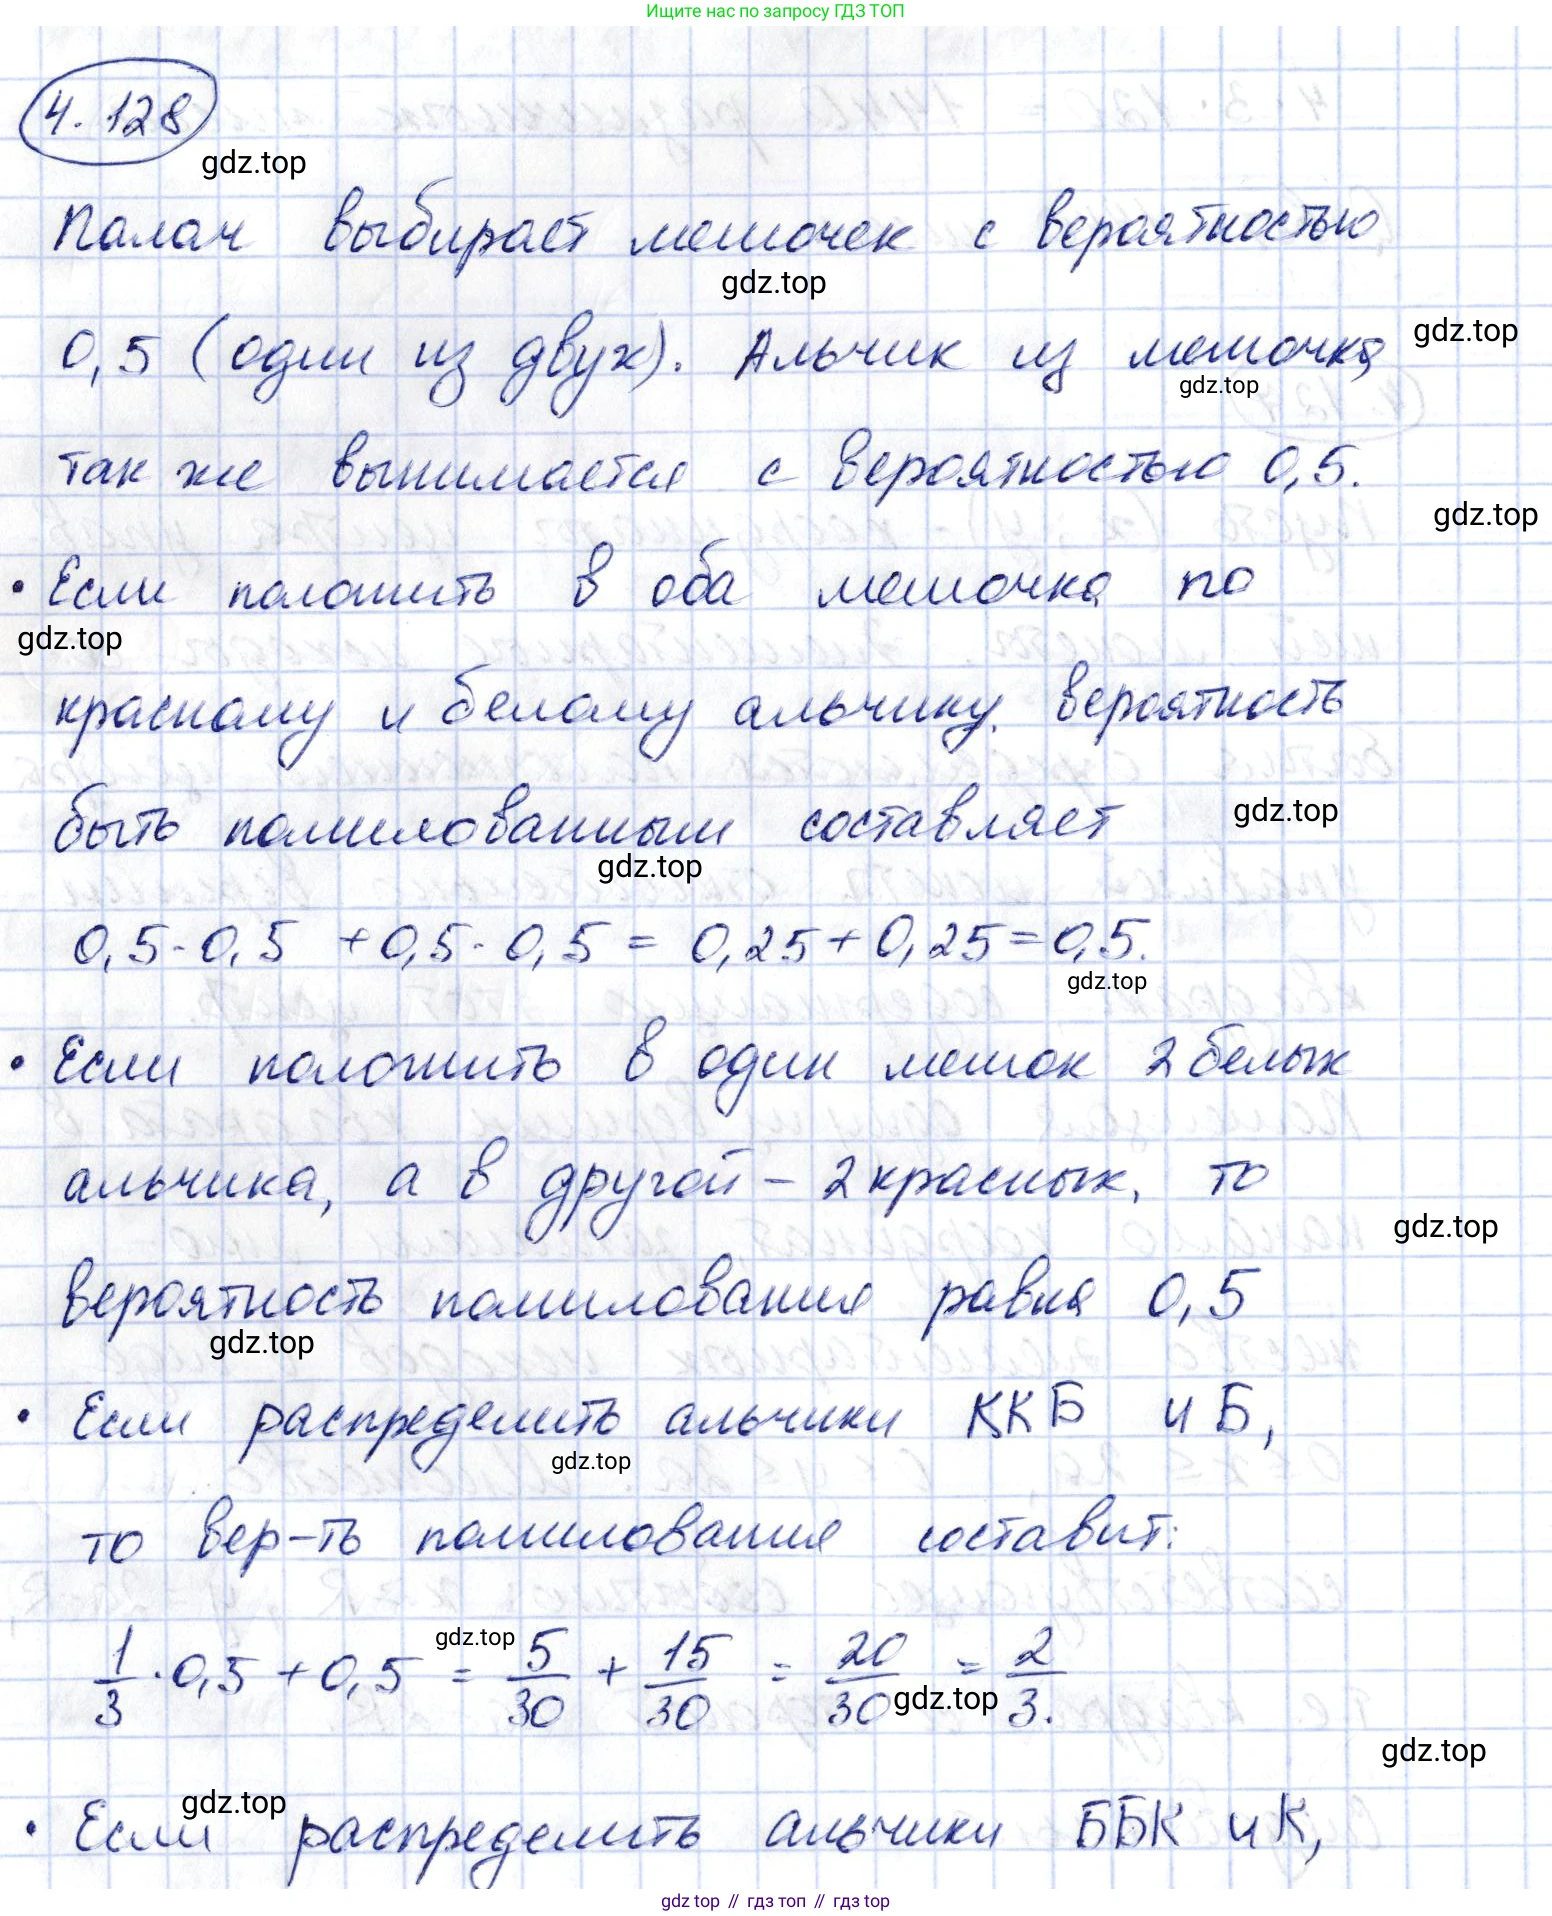 Ищите нас по запросу ГДЗ ТОП
4.128
gdz.top
Палач выбирает мешочек с вероятностью
gdz.top
0,5 (один из двух). Альчик из мешочка
gdz.top
gdz.top
так же вынимается с вероятностью 0,5.
gdz.top
• Если положить в оба мешочка по
gdz.top
красному и белому альчику, вероятность
быть помилованным составляет
gdz.top
gdz.top
0,5·0,5 + 0,5·0,5 = 0,25 + 0,25 = 0,5.
gdz.top
• Если положить в один мешок 2 белых
альчика, а в другой – 2 красных, то
gdz.top
вероятность помилования равна 0,5
gdz.top
• Если распределить альчики ККБ и Б,
gdz.top
то вер-ть помилования составит:
gdz.top
1/3 · 0,5 + 0,5 = 5/30 + 15/30 = 20/30 = 2/3.
gdz.top
gdz.top
gdz.top
• Если распределить альчики ББК и К,
gdz top // гдз топ // gdz top